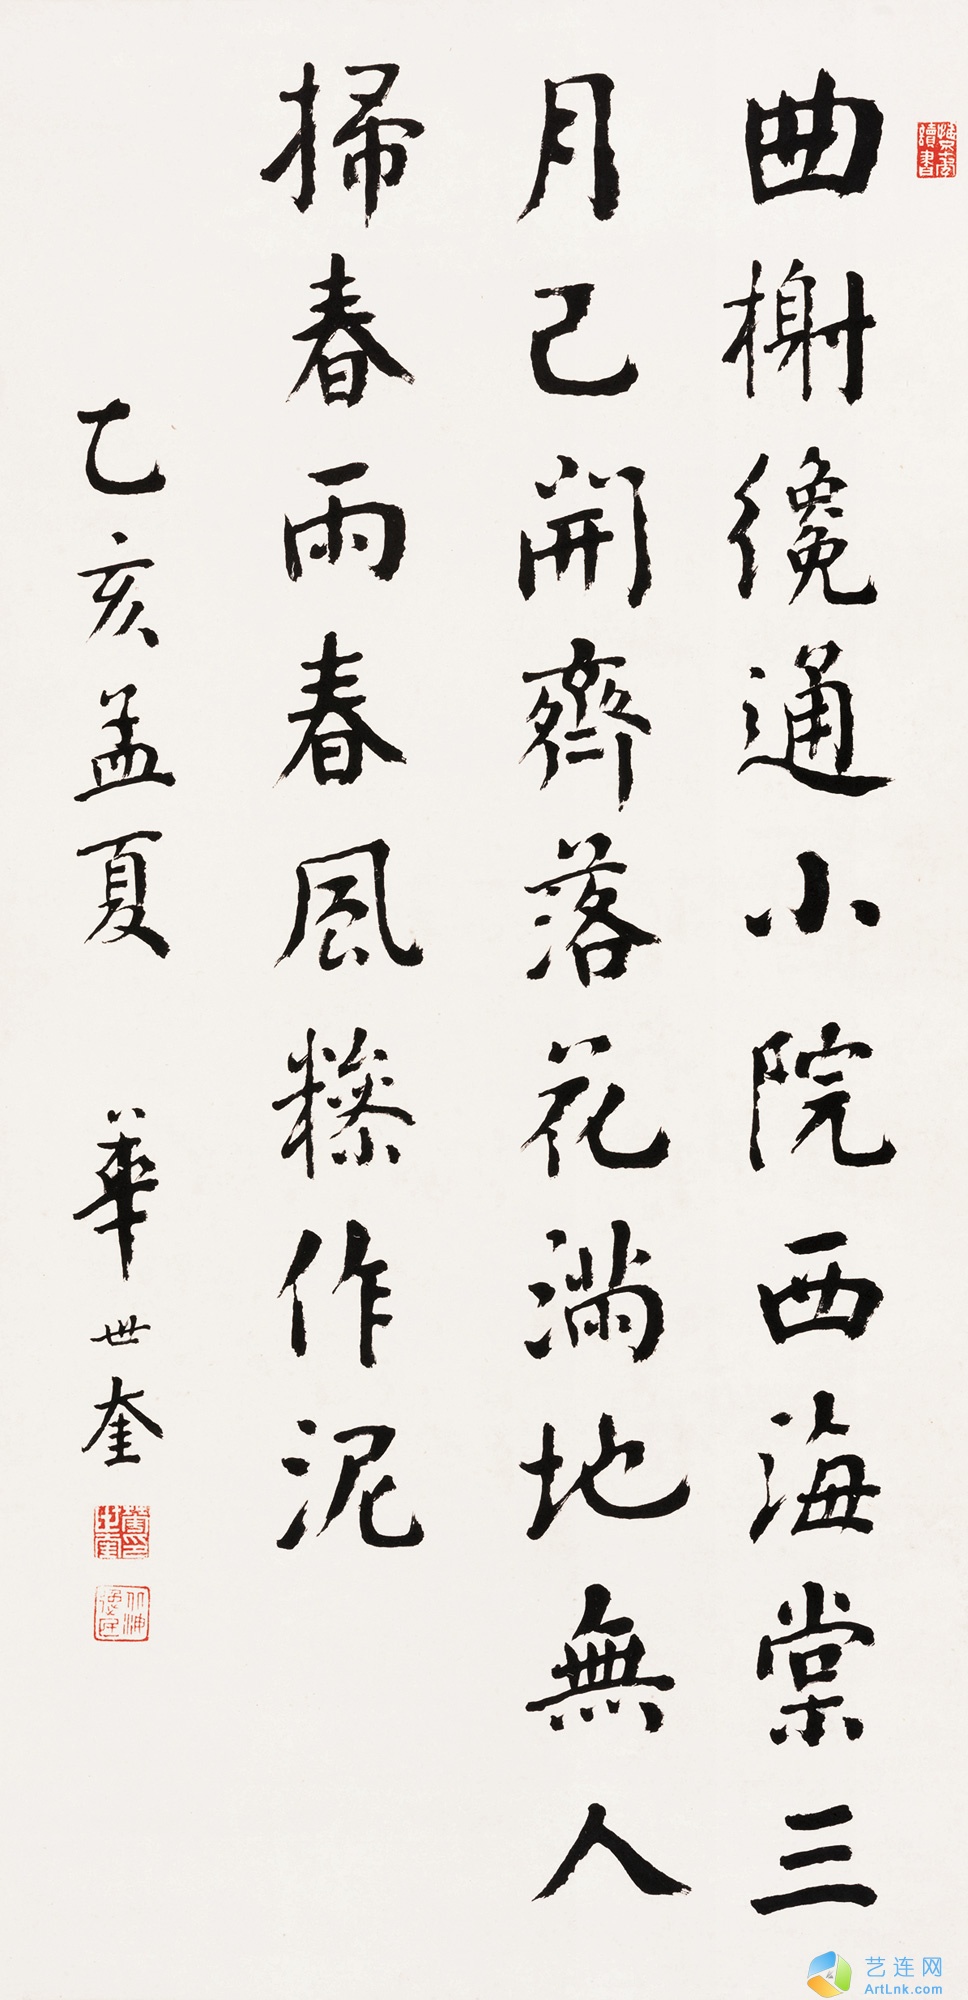 曲榭纔通小院西海棠三
月已開齊落花滿地無人
掃春雨春風糝作泥
乙亥孟夏 華世奎
艺连网
ArtLnk.com